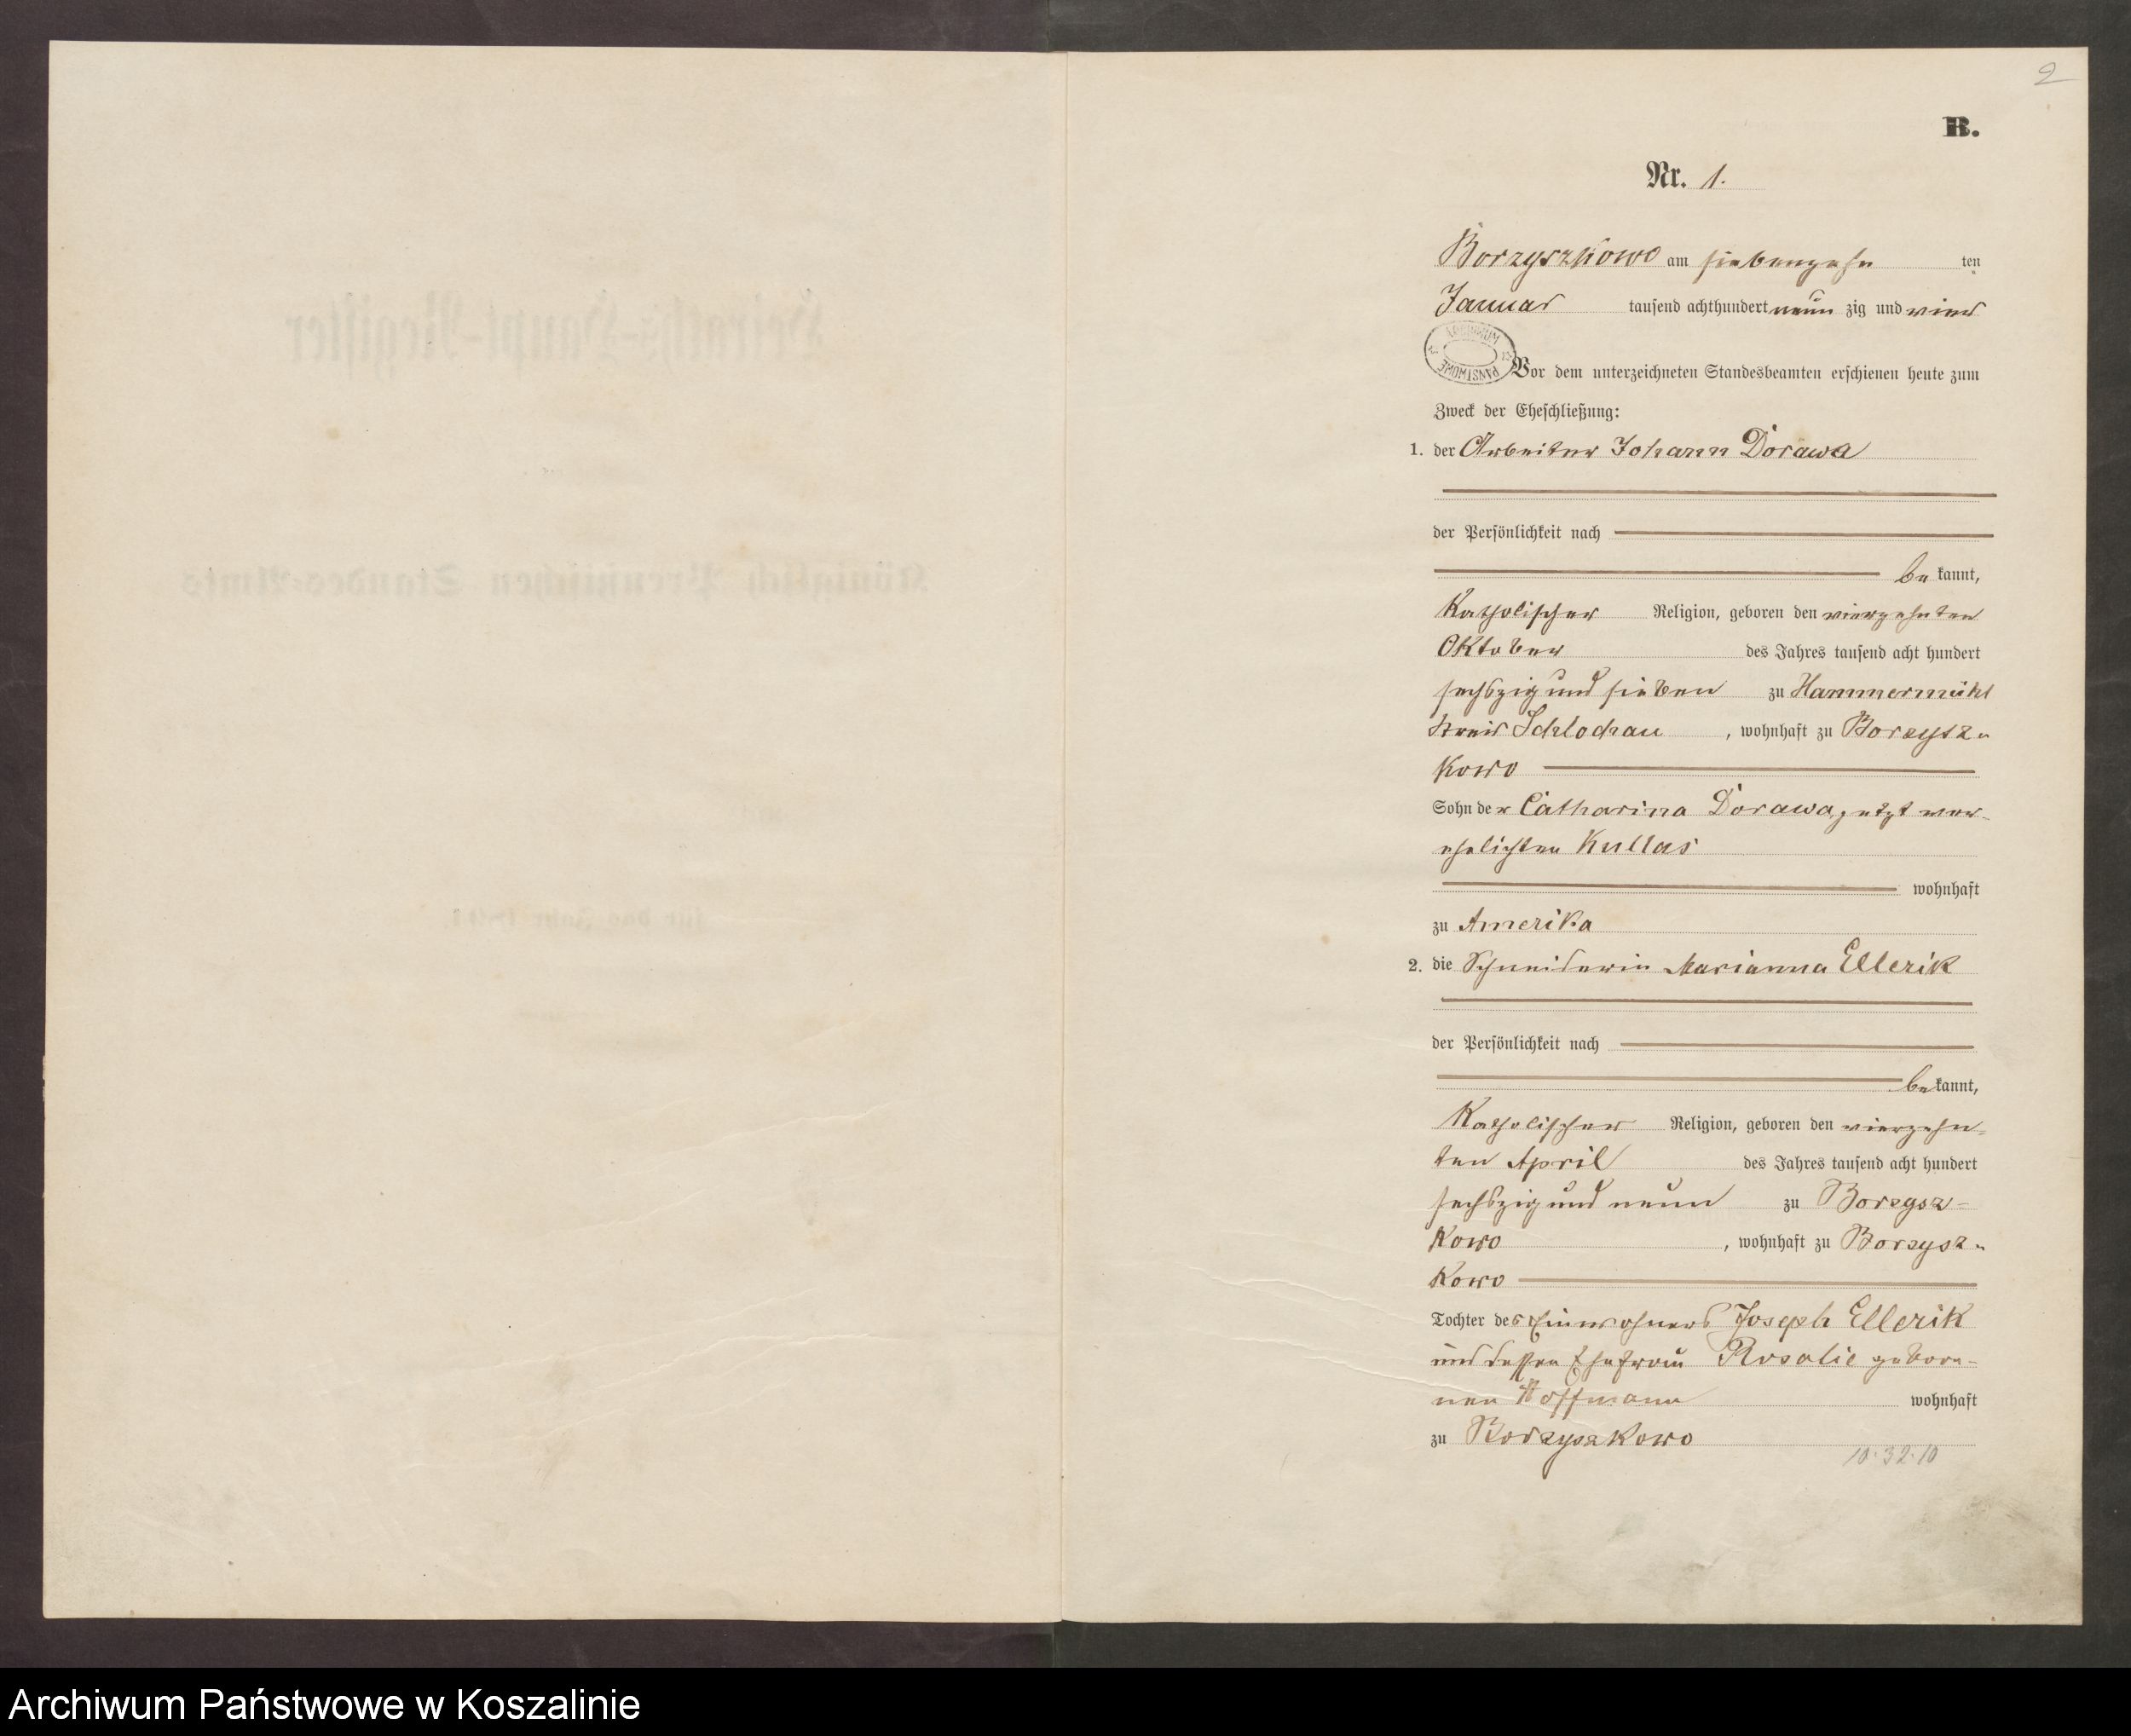 2
B.
Nr. 1.
Borzyszkowo am siebenzehn ten
Januar tausend achthundert neun zig und vier
ARCHIWUM PAŃSTWOWE
Vor dem unterzeichneten Standesbeamten erschienen heute zum
Zweck der Eheschließung:
1. der Arbeiter Johann Dorawa
der Persönlichkeit nach
be kannt,
Katholischer Religion, geboren den vierzehnten
Oktober des Jahres tausend acht hundert
sechszig und sieben zu Hammermühl
Kreis Schlochau, wohnhaft zu Borzysz-
kowo
Sohn der Catharina Dorawa, jetzt ver-
ehelichten Kullas
wohnhaft
zu Amerika
2. die Schneiderin Marianna Ellerik
der Persönlichkeit nach
be kannt,
Katholischer Religion, geboren den vierzehn-
ten April des Jahres tausend acht hundert
sechszig und neun zu Borzysz-
kowo, wohnhaft zu Borzysz-
kowo
Tochter des Einwohners Joseph Ellerik
und dessen Ehefrau Rosalie gebore-
nen Hoffmann wohnhaft
zu Borzyszkowo
10.32.10
Archiwum Państwowe w Koszalinie